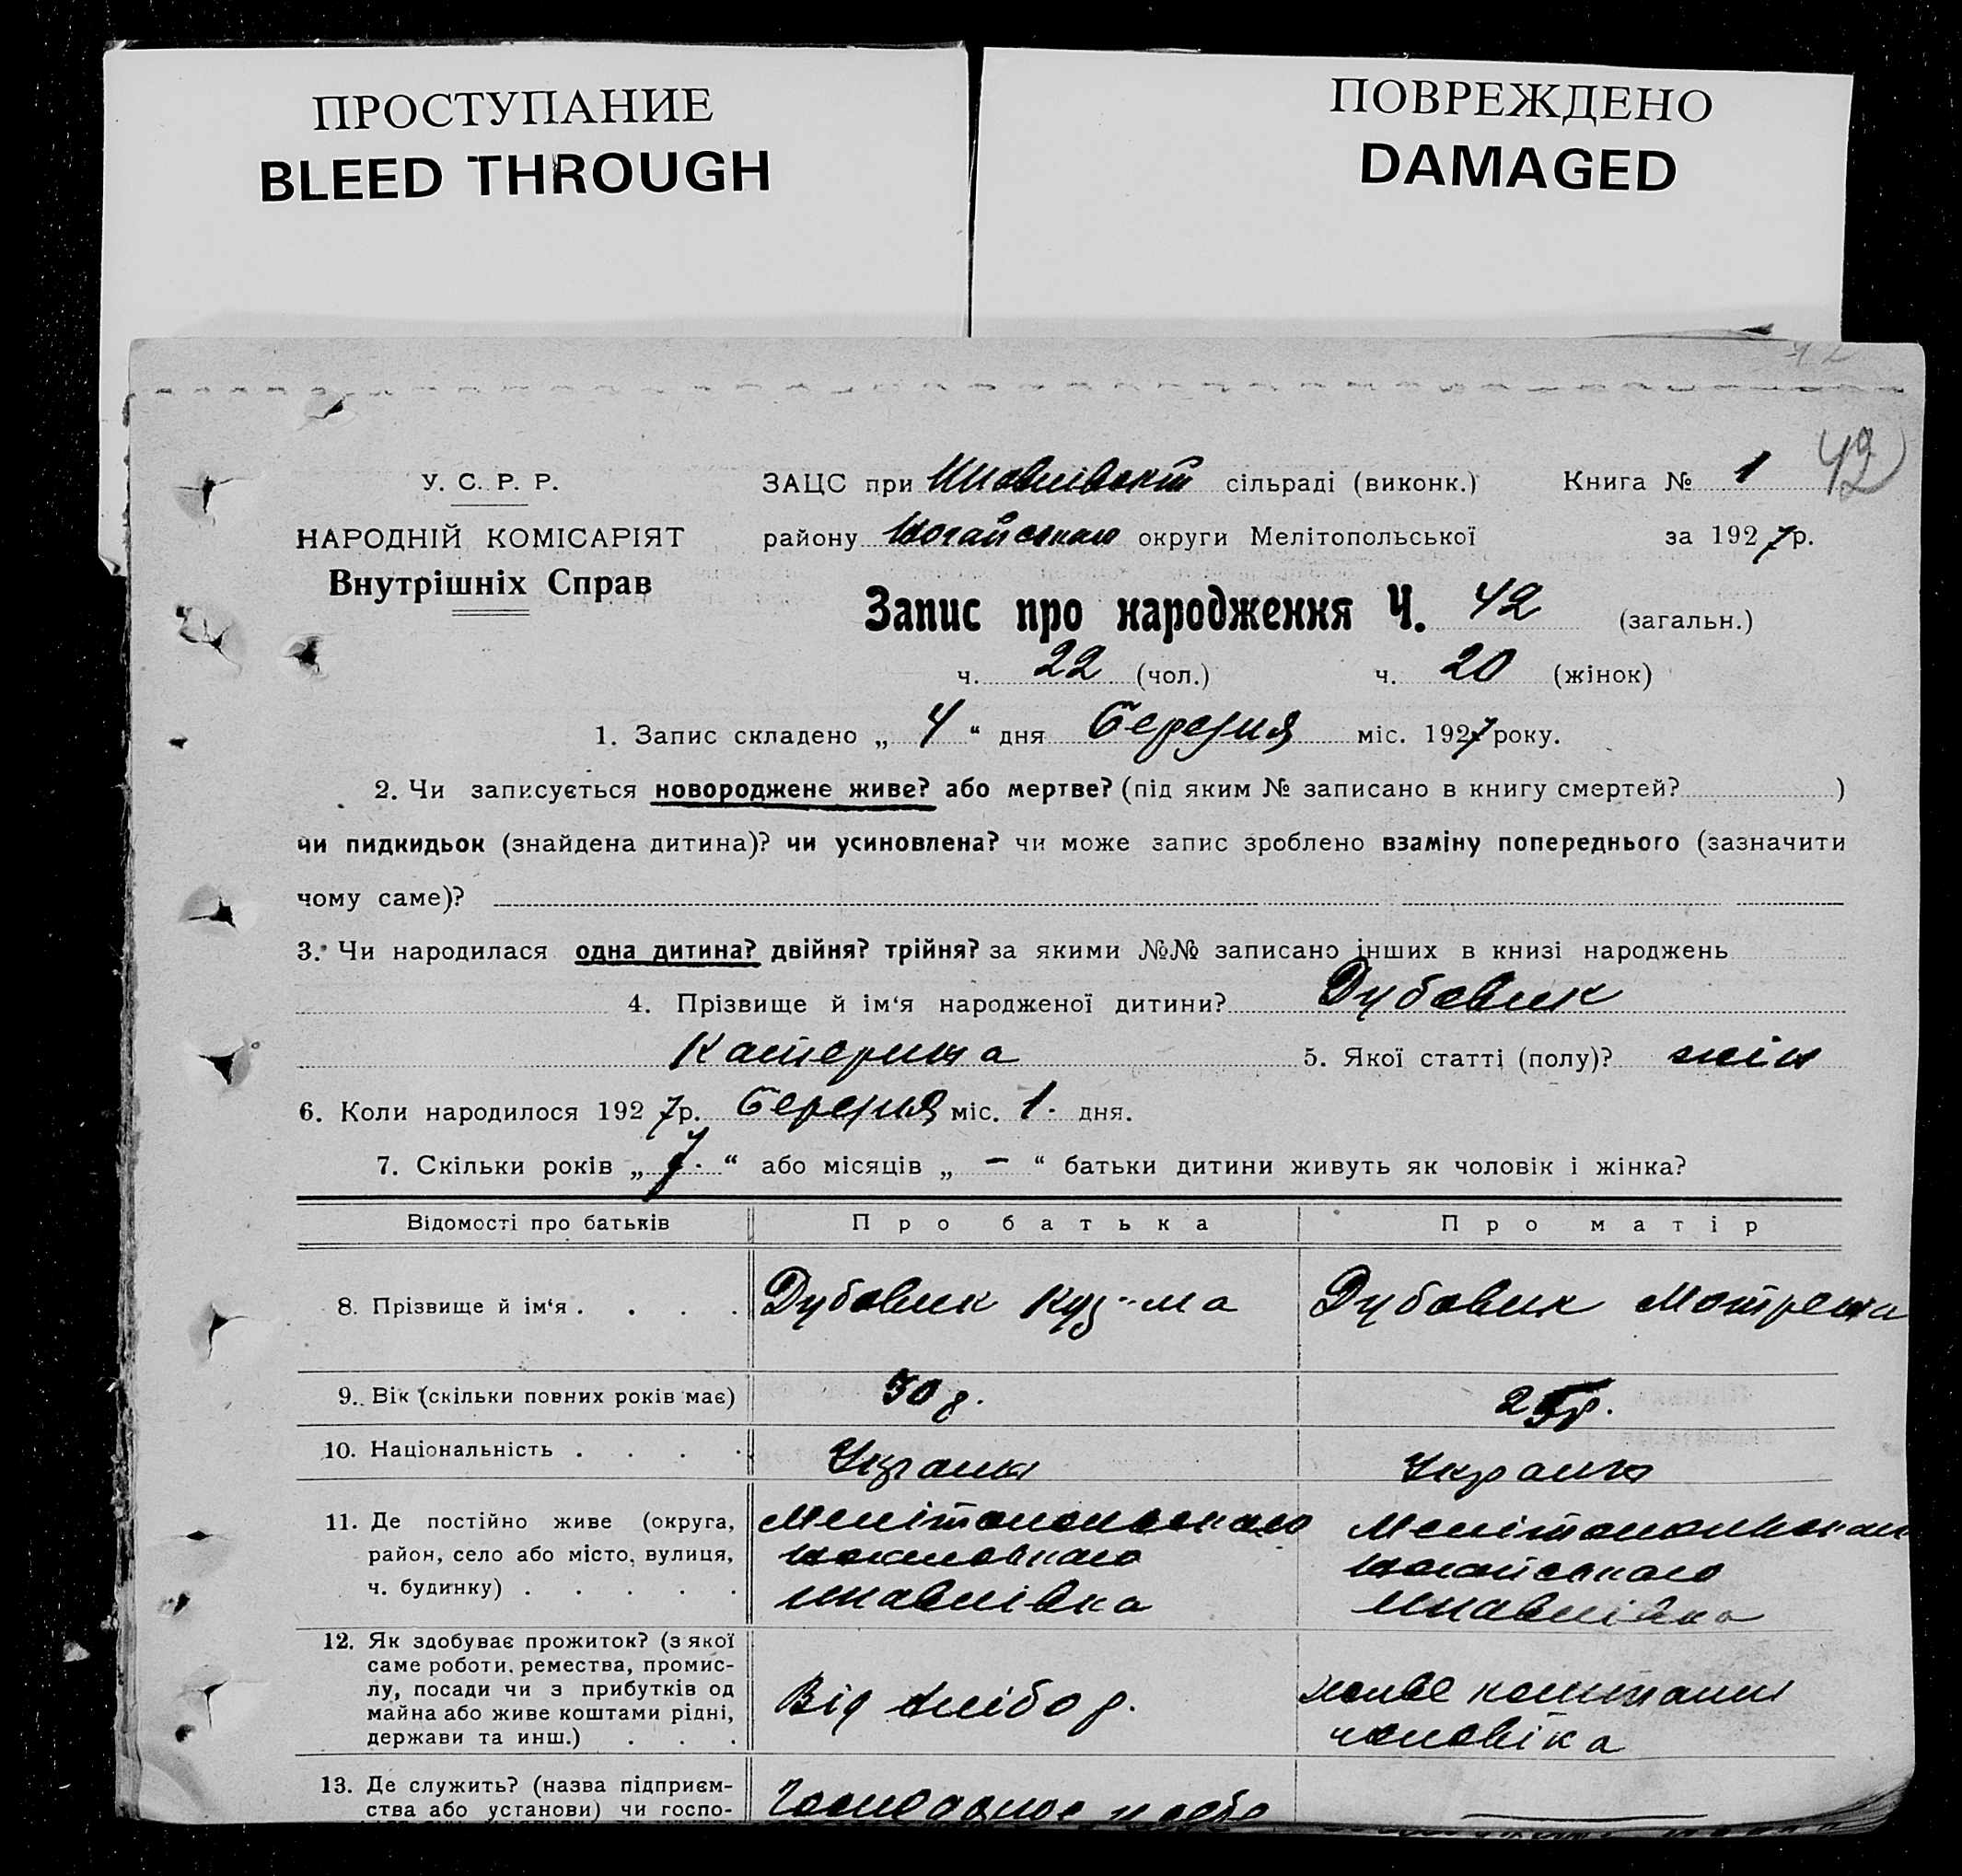 ПРОСТУПАНИЕ
BLEED THROUGH
ПОВРЕЖДЕНО
DAMAGED
42
У. С. Р. Р.
НАРОДНІЙ КОМІСАРІЯТ
Внутрішніх Справ
ЗАЦС при сільраді (виконк.)
Книга № 1
району Ногайського округи Мелітопольської
за 1927 р.
Запис про народження Ч. 42 (загальн.)
ч. 22 (чол.) ч. 20 (жінок)
1. Запис складено „ 4 “ дня Березня міс. 1927 року.
2. Чи записується новороджене живе? або мертве? (під яким № записано в книгу смертей? )
чи пидкидьок (знайдена дитина)? чи усиновлена? чи може запис зроблено взаміну попереднього (зазначити
чому саме)?
3. Чи народилася одна дитина? двійня? трійня? за якими №№ записано інших в книзі народжень
4. Прізвище й ім‘я народженої дитини? Дубовик
Катерина 5. Якої статті (полу)? жін
6. Коли народилося 1927 р. Березня міс. 1. дня.
7. Скільки років „ “ або місяців „ – “ батьки дитини живуть як чоловік і жінка?
Відомості про батьків
Про батька
Про матір
8. Прізвище й ім‘я . . . .
Дубовик Кузьма
Дубовик Мотрена
9. Вік (скільки повних років має)
30 р.
10. Національність . . . .
Україн
Україн
11. Де постійно живе (округа,
район, село або місто, вулиця,
ч. будинку) . . . . .
Мелітопольського
Мелітопольсько
Ногайського
12. Як здобуває прожиток? (з якої
саме роботи, ремества, промис-
лу, посади чи з прибутків од
майна або живе коштами рідні,
держави та инш.) . . .
Від хлібор.
живе коштами
чоловіка
13. Де служить? (назва підприєм-
ства або установи) чи госпо-